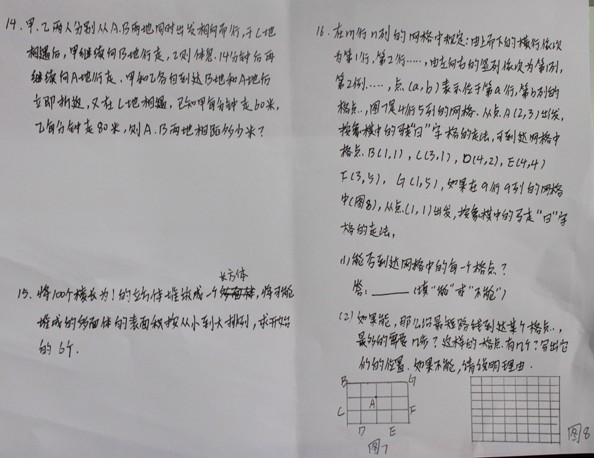 14. 甲、乙两人分别从A、B两地同时出发相向而行,于C地
相遇后,甲继续向B地行走,乙则休息14分钟后再
继续向A地行走.甲和乙各自到达B地和A地后
立即折返,又在C地相遇,已知甲每分钟走60米,
乙每分钟走80米,则A、B两地相距多少米?
长方体
15. 将100个棱长为1的立方体堆放成一个,将可能
堆成的多面体的表面积按从小到大排列,求开始
的6个.
16. 在m行n列的网格中规定:由上而下的横行依次
为第1行,第2行……,由左向右的竖列依次为第1列,
第2列……,点(a,b)表示位于第a行,第b列的
格点.图7是4行5列的网格.从点A(2,3)出发,
按象棋中的马走"日"字格的走法,可到达网格中
格点B(1,1),C(3,1),D(4,2),E(4,4)
F(3,5),G(1,5),如果在9行9列的网格
中(图8),从点(1,1)出发,按象棋中的马走"日"字
格的走法,
(1)能否到达网格中的每一个格点?
答:____(填"能"或"不能")
(2)如果能,那么沿最短路线到达某个格点,
最多的需要几步?这样的格点有几个?写出它
们的位置.如果不能,请说明理由.
B G
A
C F
D E
图7
图8